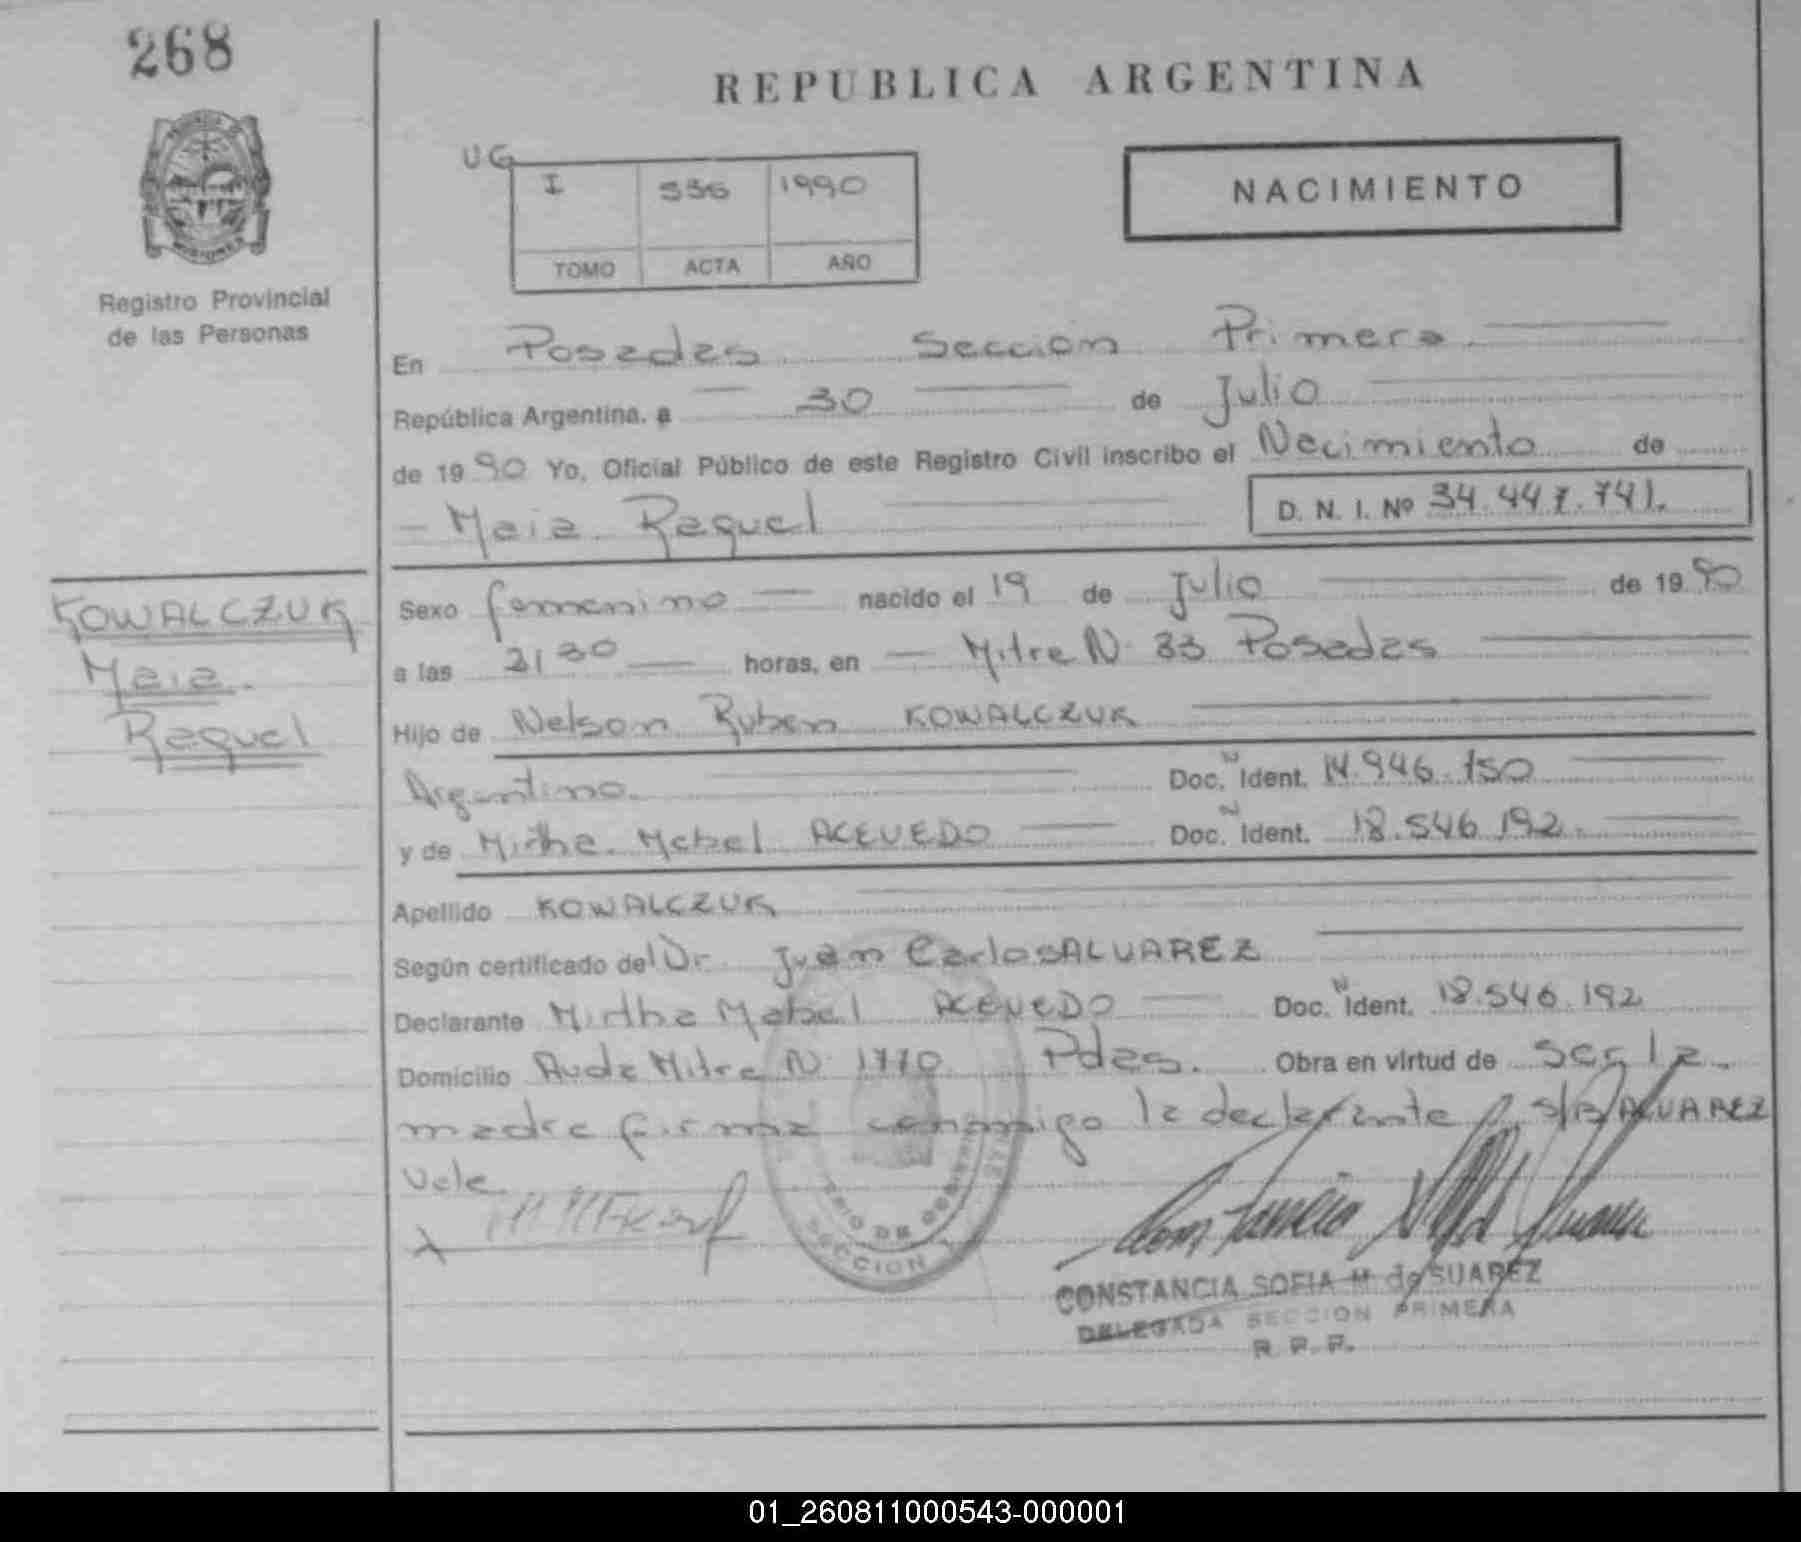 268
REPUBLICA ARGENTINA
UG
I 536 1990
TOMO ACTA AÑO
NACIMIENTO
Registro Provincial
de las Personas
En Posadas Seccion Primera
República Argentina, a 30 de Julio
de 1990 Yo, Oficial Público de este Registro Civil inscribo el Nacimiento de
Maia Raquel
D. N. I. Nº 34.447.741.
KOWALCZUK
Maia
Raquel
Sexo femenino nacido el 19 de Julio de 1990
a las 21 30 horas, en Mitre N. 33 Posadas
Hijo de Nelson Ruben KOWALCZUK
Argentino. Doc. N Ident. 14.946.150
y de Mirtha Mabel ACEVEDO Doc. N Ident. 18.546.192.
Apellido KOWALCZUK
Según certificado del Dr. Juan Carlos ALVAREZ
Declarante Mirtha Mabel ACEVEDO Doc. N Ident. 18.546.192
Domicilio Avda Mitre N. 1770 Pdas. Obra en virtud de ser la
madre firma conmigo la declarante S/B ALVAREZ
Vale.
SECCION
CONSTANCIA SOFIA M. de SUAREZ
DELEGADA SECCION PRIMERA
R. P. P.
01_260811000543-000001